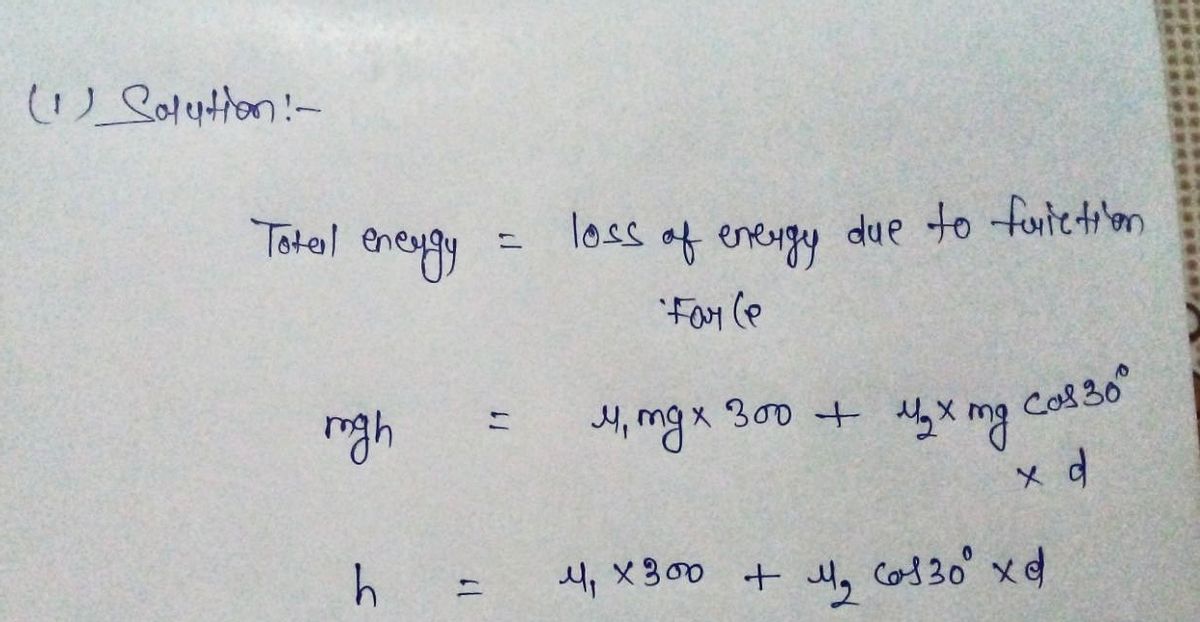 (1) Solution:-
Total energy = loss of energy due to friction
Force
mgh = μ₁mg x 300 + μ₂ x mg cos30°
x d
h = μ₁ x 300 + μ₂ cos30° x d